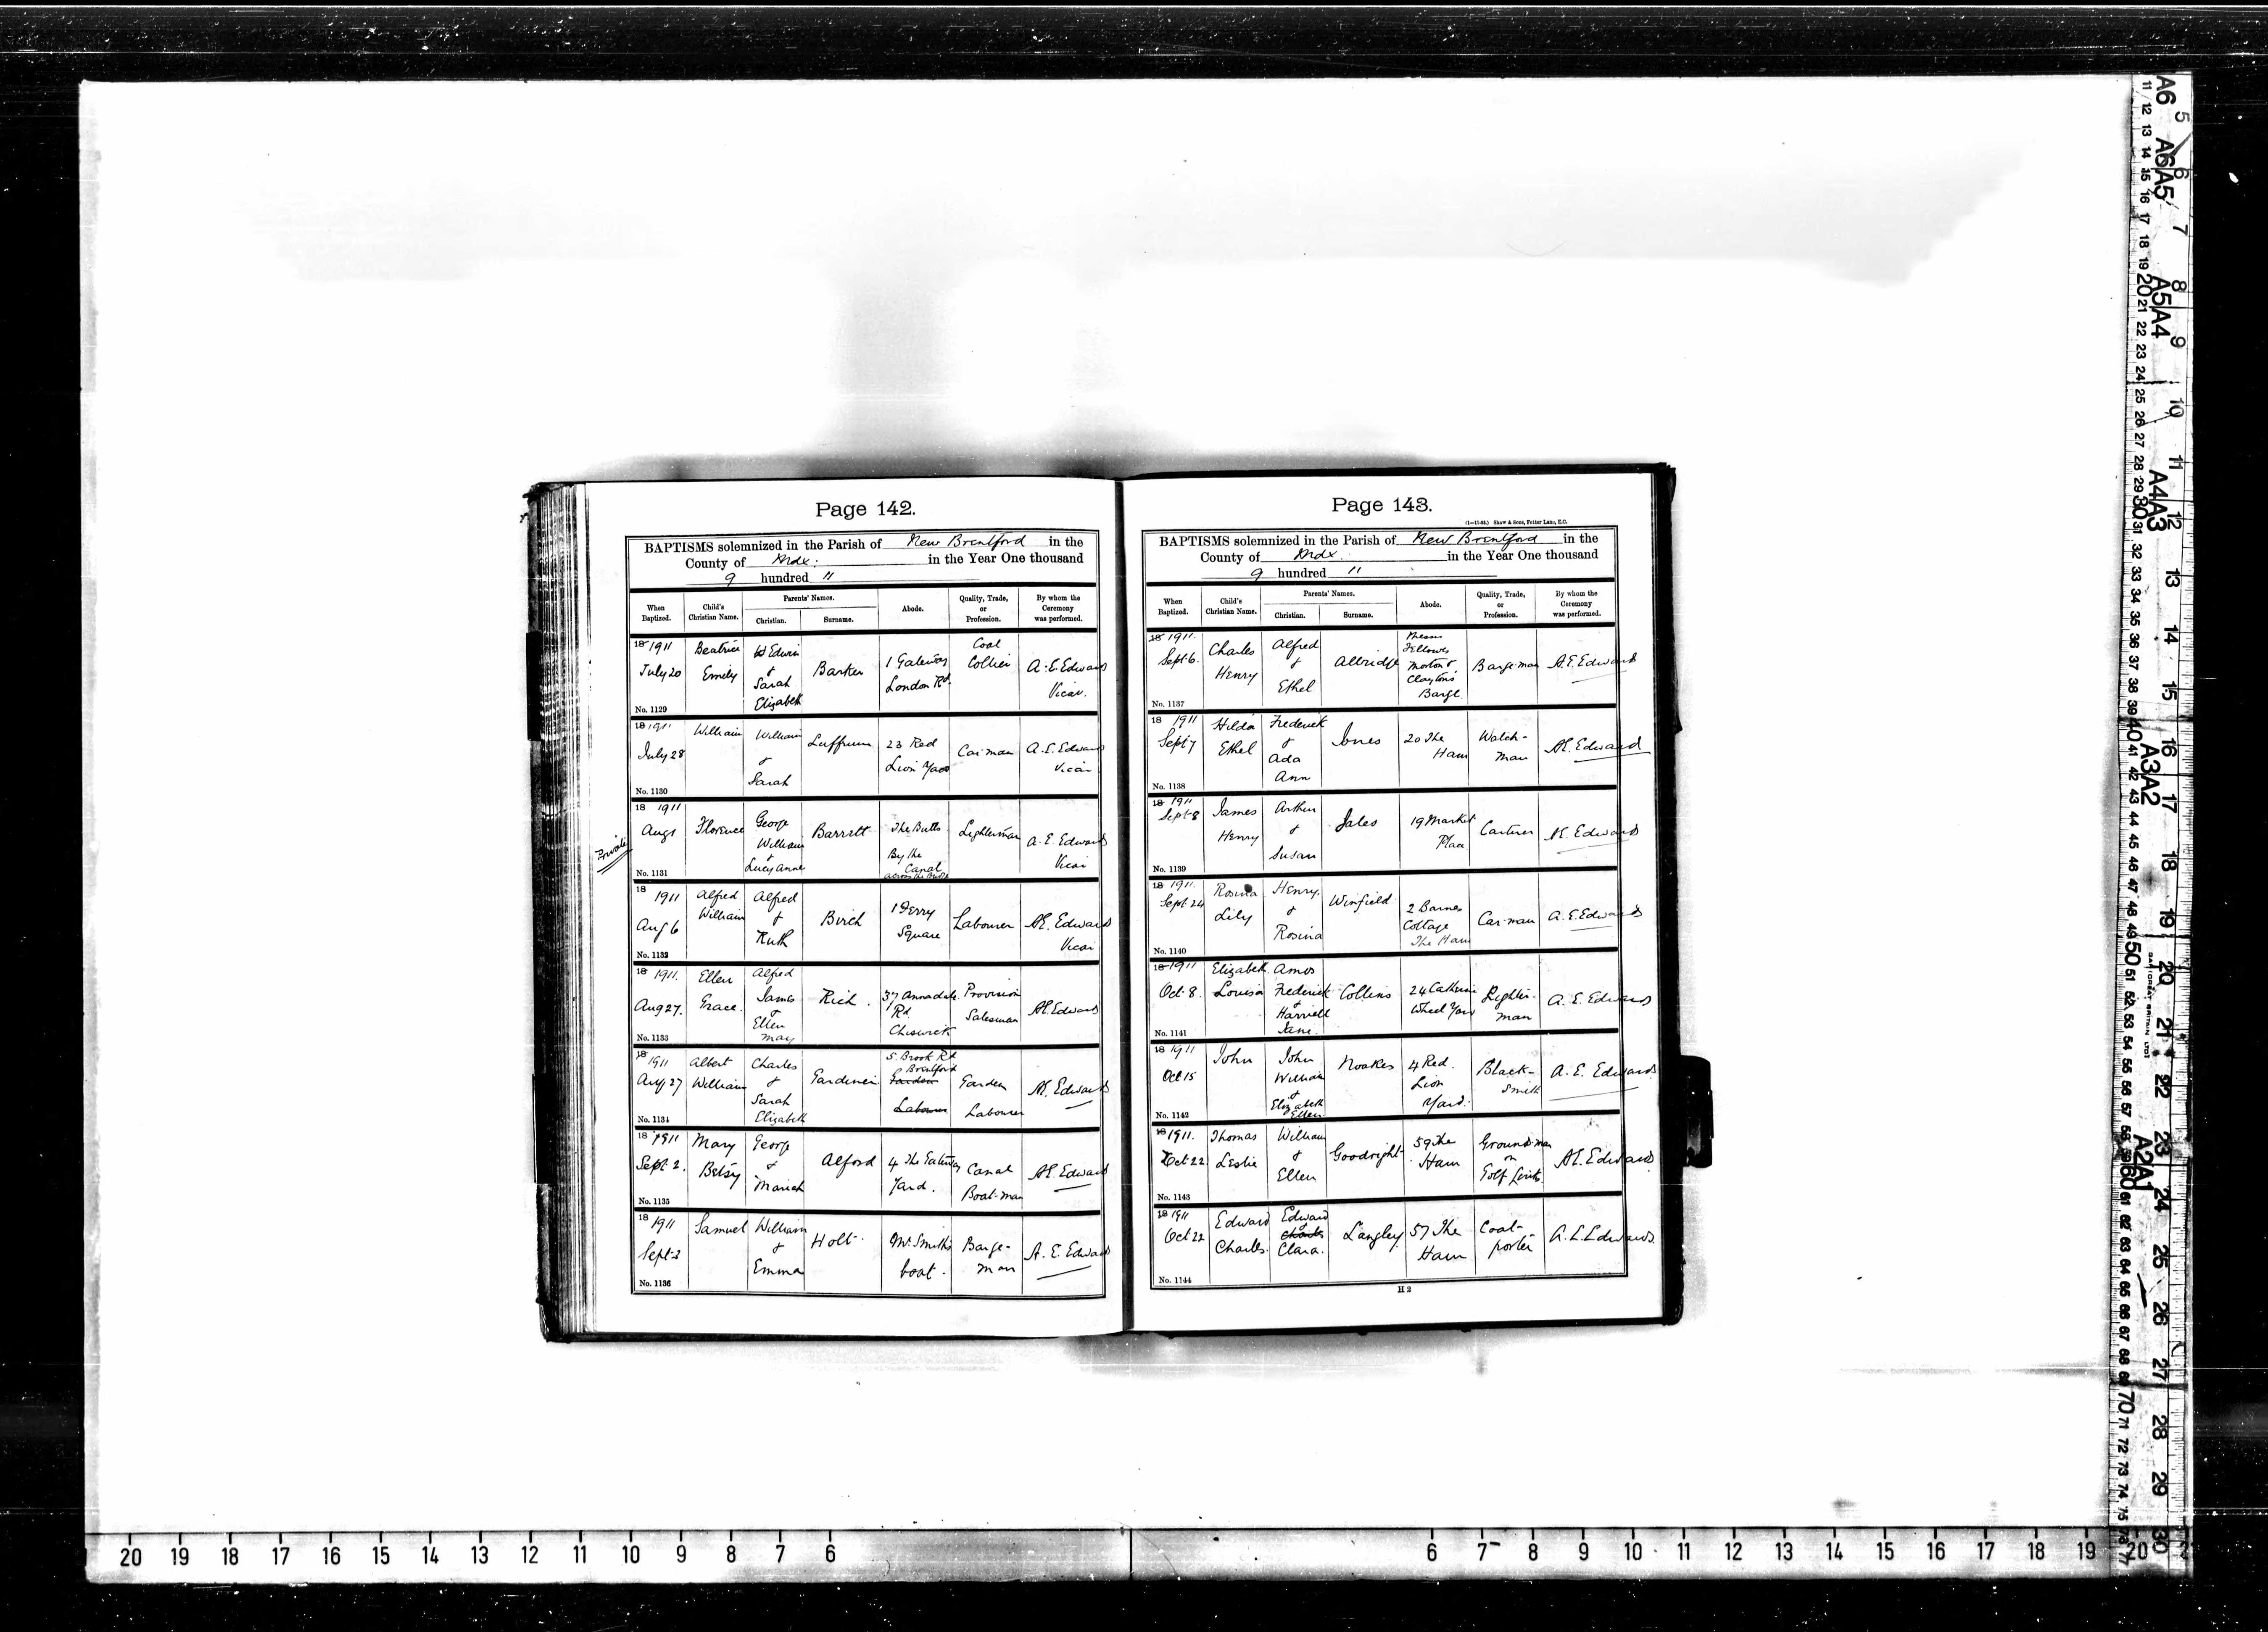 Page 142.
BAPTISMS solemnized in the Parish of New Brentford in the
County of Mdx: in the Year One thousand
9 hundred 11
When Baptized. Child's Christian Name. Parents' Names. Christian. Surname. Abode. Quality, Trade, or Profession. By whom the Ceremony was performed.
18 1911 July 20 Beatrice Emily Edwin & Sarah Elizabeth Barker 1 Gateway London Rd. Coal Collier A. E. Edwards Vicar.
No. 1129
18 1911 July 28 William William & Sarah Luffrum 23 Red Lion Yard Carman A. E. Edwards Vicar
No. 1130
Private
18 1911 Aug 1 Florence George William & Lucy Anne Barratt The Butts By the Canal across the Lighterman A. E. Edwards Vicar
No. 1131
18 1911 Aug 6 Alfred William Alfred & Ruth Birch 1 Ferry Square Labourer AE. Edwards Vicar
No. 1132
18 1911. Aug 27. Ellen Grace. Alfred James & Ellen May Rich. 37 Annadale Rd Chiswick Provision Salesman AE. Edwards
No. 1133
18 1911 Aug 27 Albert William Charles & Sarah Elizabeth Gardiner 5 Brook Rd Brentford Garden Labourer Garden Labourer AE. Edwards
No. 1134
18 1911 Sept 2. Mary Betsy George & Mariah Alford 4 The Gateway Yard. Canal Boat-man AE. Edwards
No. 1135
18 1911 Sept 2 Samuel William & Emma Holt. Mr. Smith's boat. Barge-man A. E. Edwards
No. 1136
Page 143.
Shaw & Sons, Fetter Lane, E.C.
BAPTISMS solemnized in the Parish of New Brentford in the
County of Mdx. in the Year One thousand
9 hundred 11
When Baptized. Child's Christian Name. Parents' Names. Christian. Surname. Abode. Quality, Trade, or Profession. By whom the Ceremony was performed.
18 1911. Sept. 6. Charles Henry Alfred & Ethel Allridge Messrs Fellowes Morton & Clayton's Barge Barge-man A. E. Edwards
No. 1137
18 1911 Sept 7 Hilda Ethel Frederick & Ada Ann Jones 20 The Ham Watch-man AE. Edwards
No. 1138
18 1911 Sept 8 James Henry Arthur & Susan Jales 19 Market Place Carterer AE. Edwards
No. 1139
18 1911. Sept 24 Rosina Lily Henry. & Rosina Winfield 2 Barnes Cottage The Ham Car-man A. E. Edwards
No. 1140
18 1911 Oct. 8. Elizabeth Louisa Amos Frederick & Harriett Jane. Collins 24 Catherine Wheel Yard Lighter-man A. E. Edwards
No. 1141
18 1911 Oct 15 John John William & Elizabeth Ellen Noakes 4 Red. Lion Yard. Black-smith A. E. Edwards
No. 1142
18 1911. Oct 22 Thomas Leslie William & Ellen Goodright 59 The Ham Grounds-man on Golf Links AE. Edwards
No. 1143
18 1911 Oct 22 Edward Charles. Edward & Charles Clara. Langley 57 The Ham Coal-porter A. E. Edwards.
No. 1144
H 2